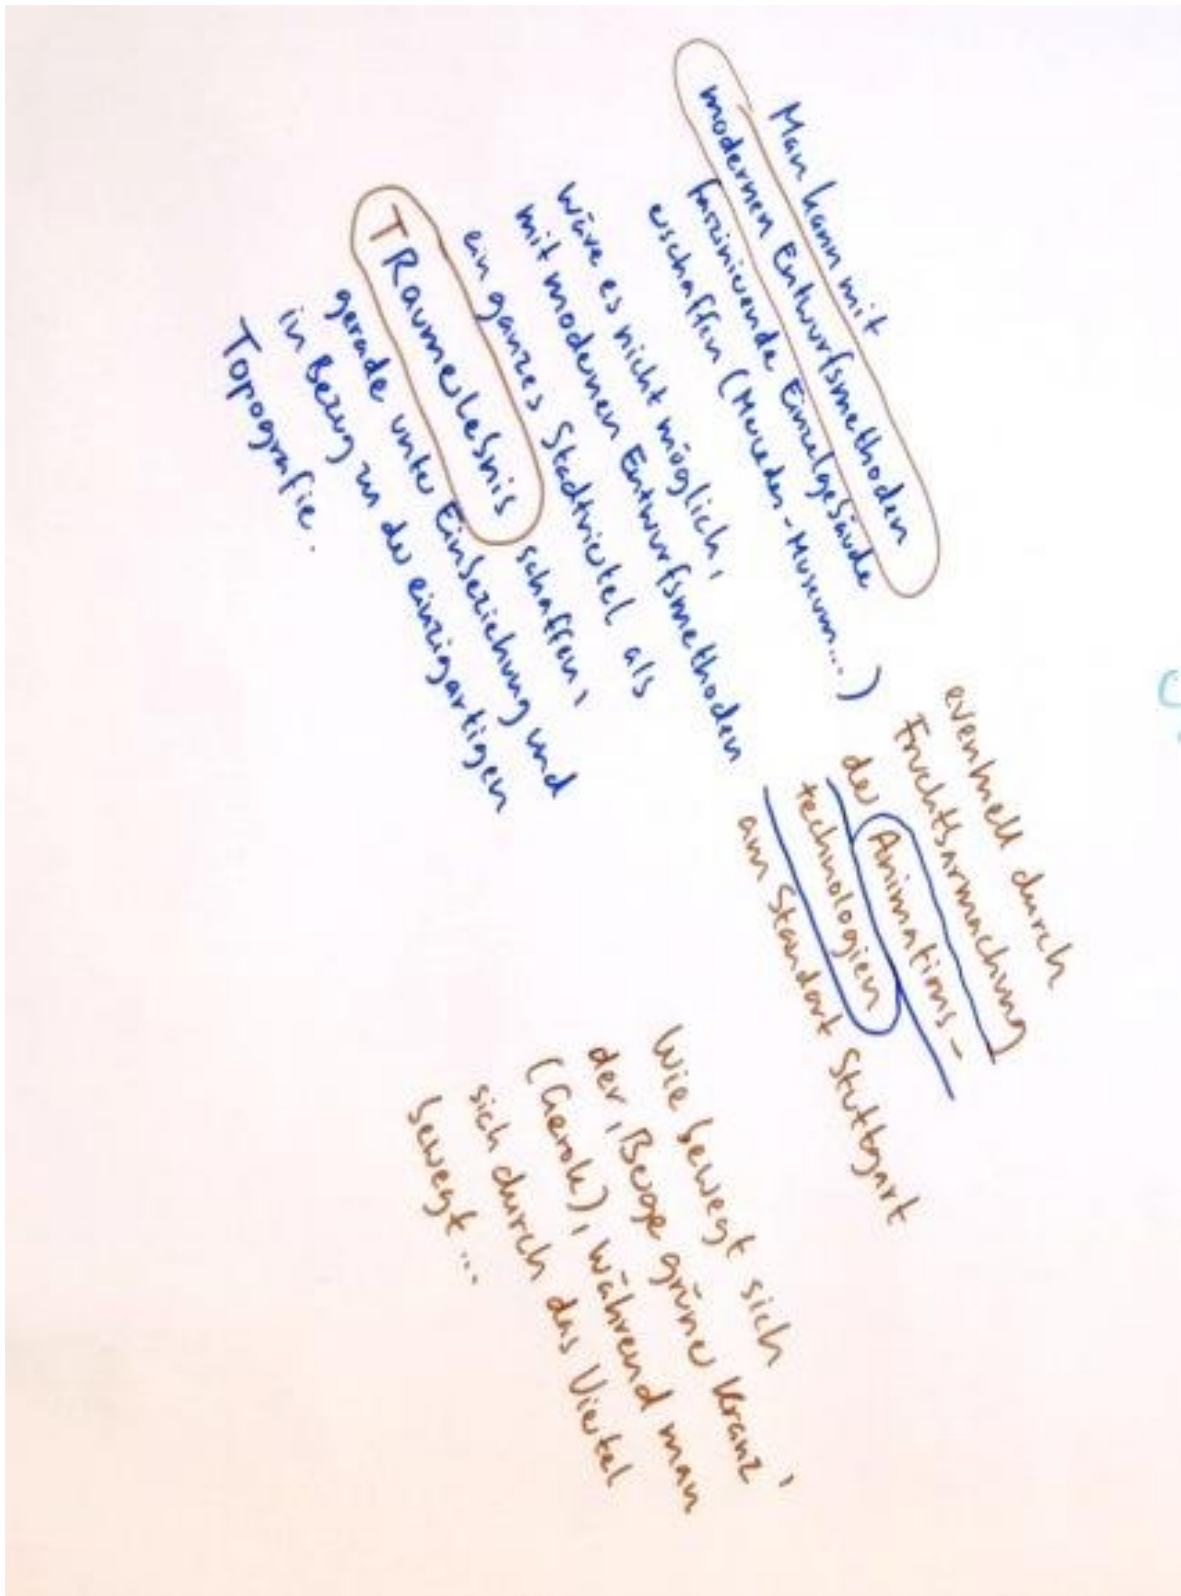 Man kann mit
modernen Entwurfsmethoden
faszinierende Einzelgebäude
erschaffen (Mercedes-Museum...)
wäre es nicht möglich,
mit modernen Entwurfsmethoden
ein ganzes Stadtviertel als
TRaumerlebnis schaffen,
gerade unter Einbeziehung und
in Bezug zu der einzigartigen
Topografie.
eventuell durch
Fruchtbarmachung
der Animations-
technologien
am Standort Stuttgart
Wie bewegt sich
der ‚Berge grüner Kranz‘
(Gerok), während man
sich durch das Viertel
bewegt...